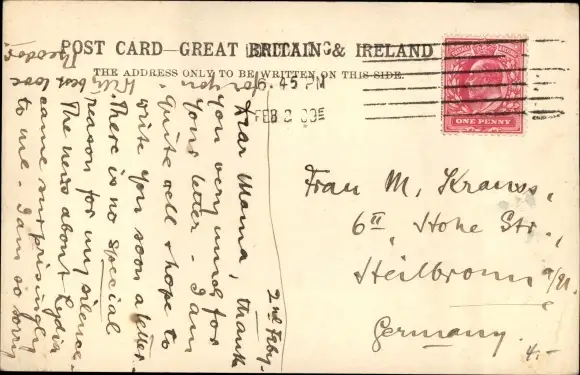 POST CARD—GREAT BRITAIN & IRELAND
THE ADDRESS ONLY TO BE WRITTEN ON THIS SIDE.
6.45 PM
FEB 2
ONE PENNY
Frau M. Krauss,
6II, Hohe Str.,
Heilbronn a/N.
Germany.
4.-
2nd Feby-
Dear Mama, thank
you very much for
your letter - I am
quite well & hope to
write you soon a letter.
There is no special
reason for my silence.
The news about Lydia
came surprisingly
to me. I am so sorry
for you.
With best love
Theodor.